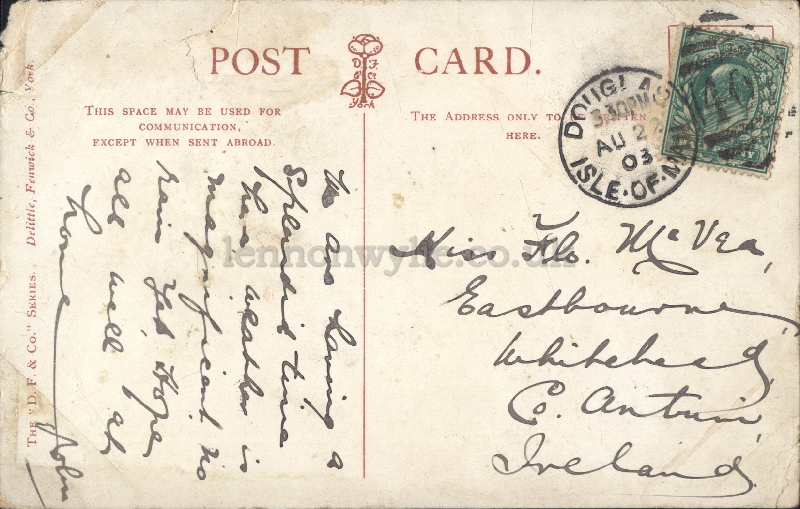 POST CARD.
D. F. & Co York
THIS SPACE MAY BE USED FOR
COMMUNICATION,
EXCEPT WHEN SENT ABROAD.
THE ADDRESS ONLY TO BE WRITTEN
HERE.
DOUGLAS
3.30PM
AU 27
03
ISLE·OF·MAN
40
We are having a
Splendid time
here weather is
magnificent no
rain yet. Hope
all well at
home
John
Miss Flo. McVea,
Eastbourne,
Whitehead,
Co. Antrim,
Ireland
THE "D. F. & CO." SERIES. Delittle, Fenwick & Co., York.
lennonwylie.co.uk